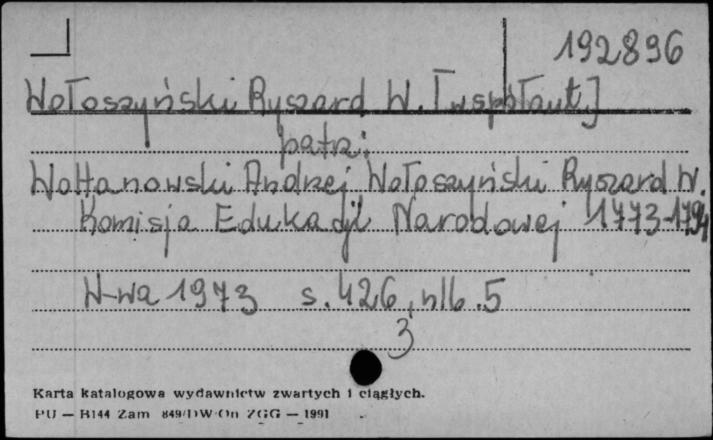 192896
Wołoszyński Ryszard W. [współaut.]
patrz:
Woltanowski Andrzej Wołoszyński Ryszard W.
Komisja Edukacji Narodowej 1773-1794
W-wa 1973 s. 426, nlb. 5
3
Karta katalogowa wydawnictw zwartych i ciągłych.
PU — B144 Zam 849/DW-On ZGG — 1991